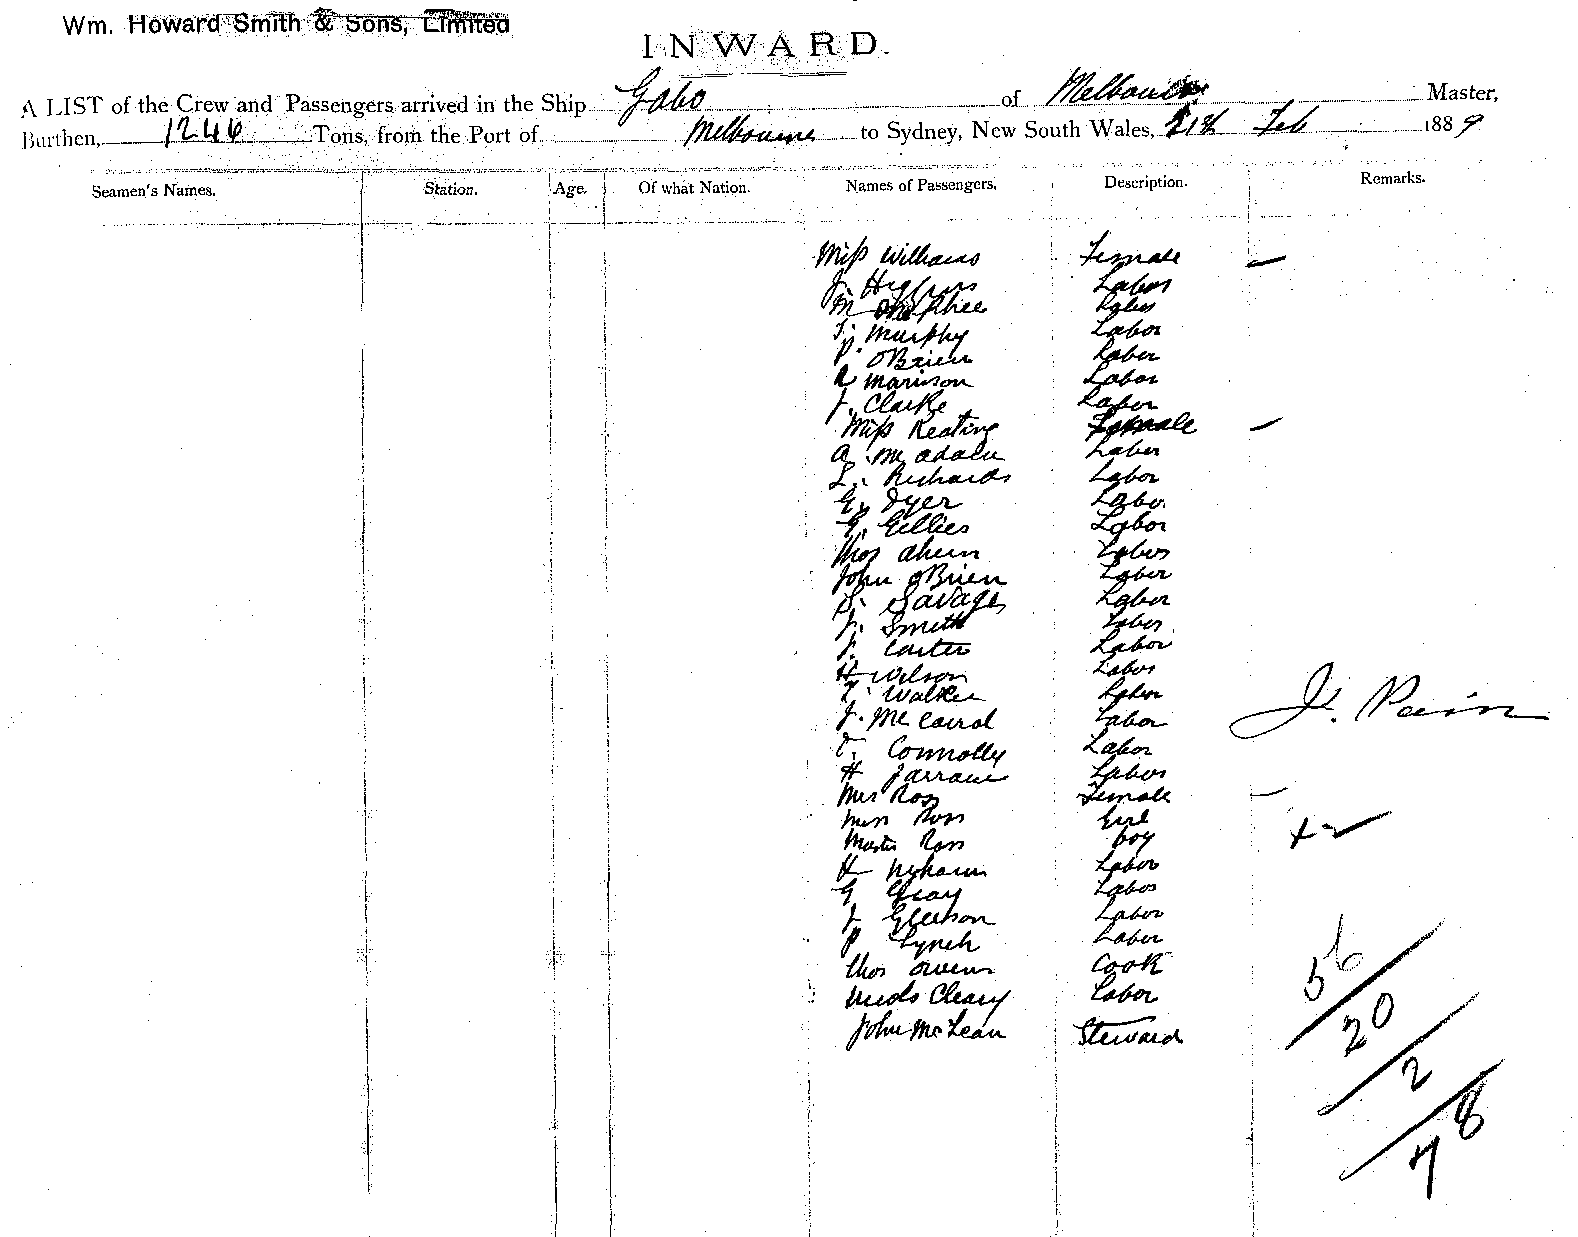 Wm. Howard Smith & Sons, Limited
INWARD.
A LIST of the Crew and Passengers arrived in the Ship Gabo of Melbourne Master,
Burthen, 1246 Tons, from the Port of Melbourne to Sydney, New South Wales, Feb 1889
Seamen's Names. Station. Age. Of what Nation. Names of Passengers. Description. Remarks.
Miss Williams Female –
J. Higgins Labor
M McPhee Labor
T. Murphy Labor
P. OBrien Labor
R Morrison Labor
J. Clarke Labor
Miss Keating Female –
A. Labor
L. Richards Labor
G. Dyer Labor
G. Gillies Labor
Thos Ahern Labor
John OBrien Labor
S. Savage Labor
J. Smith Labor
J. Carter Labor
H Wilson Labor
T. Walker Labor
J. Mc Labor
J. Pain
T. Connolly Labor
H Labor
Mrs Ross Female –
Miss Ross Girl
Master Ross boy
H Labor
G Gray Labor
J Gleeson Labor
P Lynch Labor
Thos Owens Cook
Cleary Labor
John McLean Steward
56
20
2
78